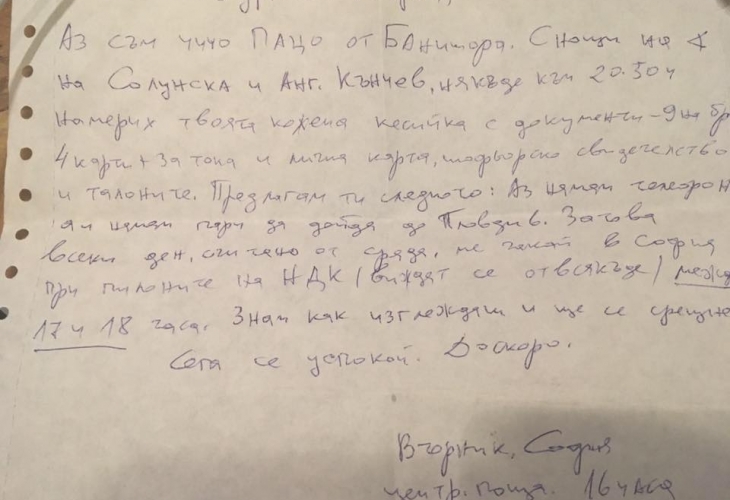 Аз съм чичо Пацо от Банишора. Снощи на ∢
на Солунска и Анг. Кънчев, някъде към 20.30 ч
намерих твоята кожена кесийка с документи - 9 на бр
4 карти + за тока и лична карта, шофьорско свидетелство
и талоните. Предлагам ти следното: Аз нямам телефон
нямам пари да дойда до Пловдив. Затова
всеки ден, считано от сряда, ме чакай в София
при пилоните на НДК /виждат се отвсякъде/ межд
17 и 18 часа. Знам как изглеждаш и ще се срещне
Сега се успокой. Доскоро.
Вторник, София
центр. поща. 16 часа